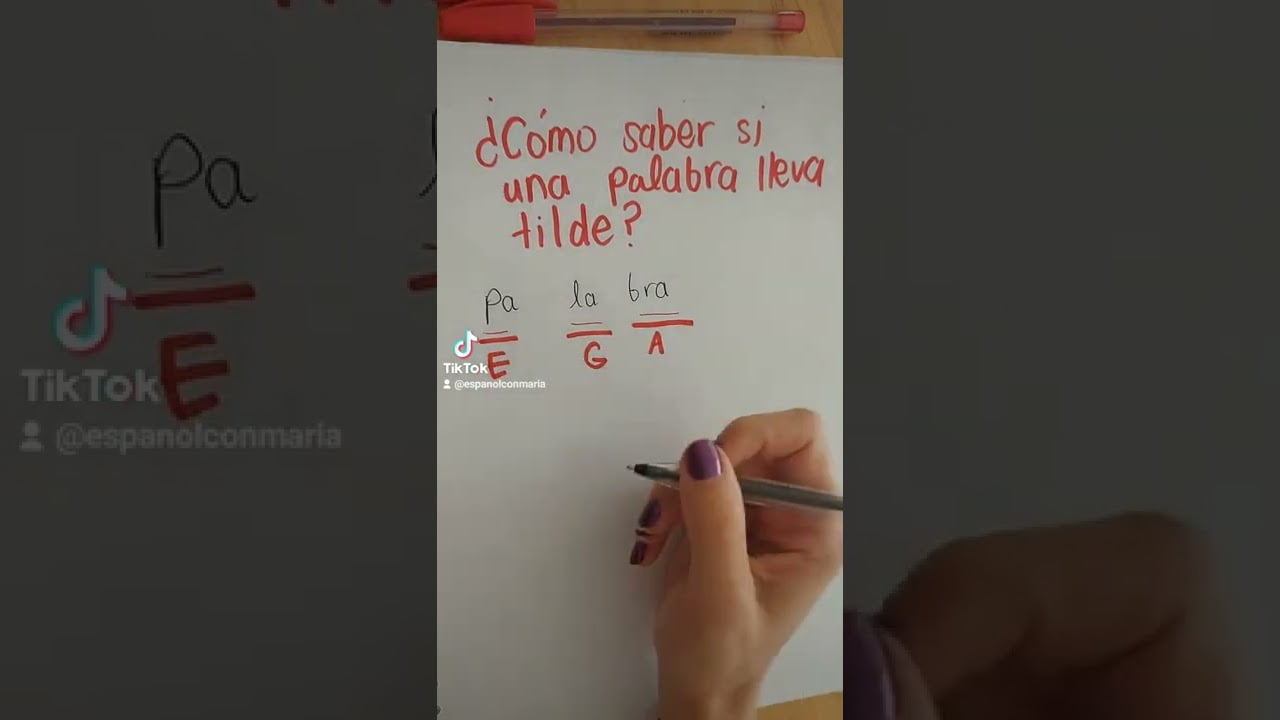 ¿Cómo saber si
una palabra lleva
tilde?
pa la bra
E G A
TikTok
@espanolconmaria
pa
E
TikTok
@espanolconmaria